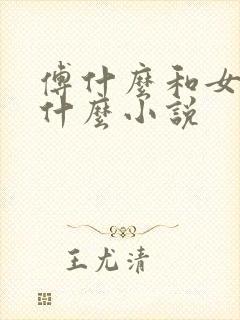 傅什麼和女
什麼小說
王尤清